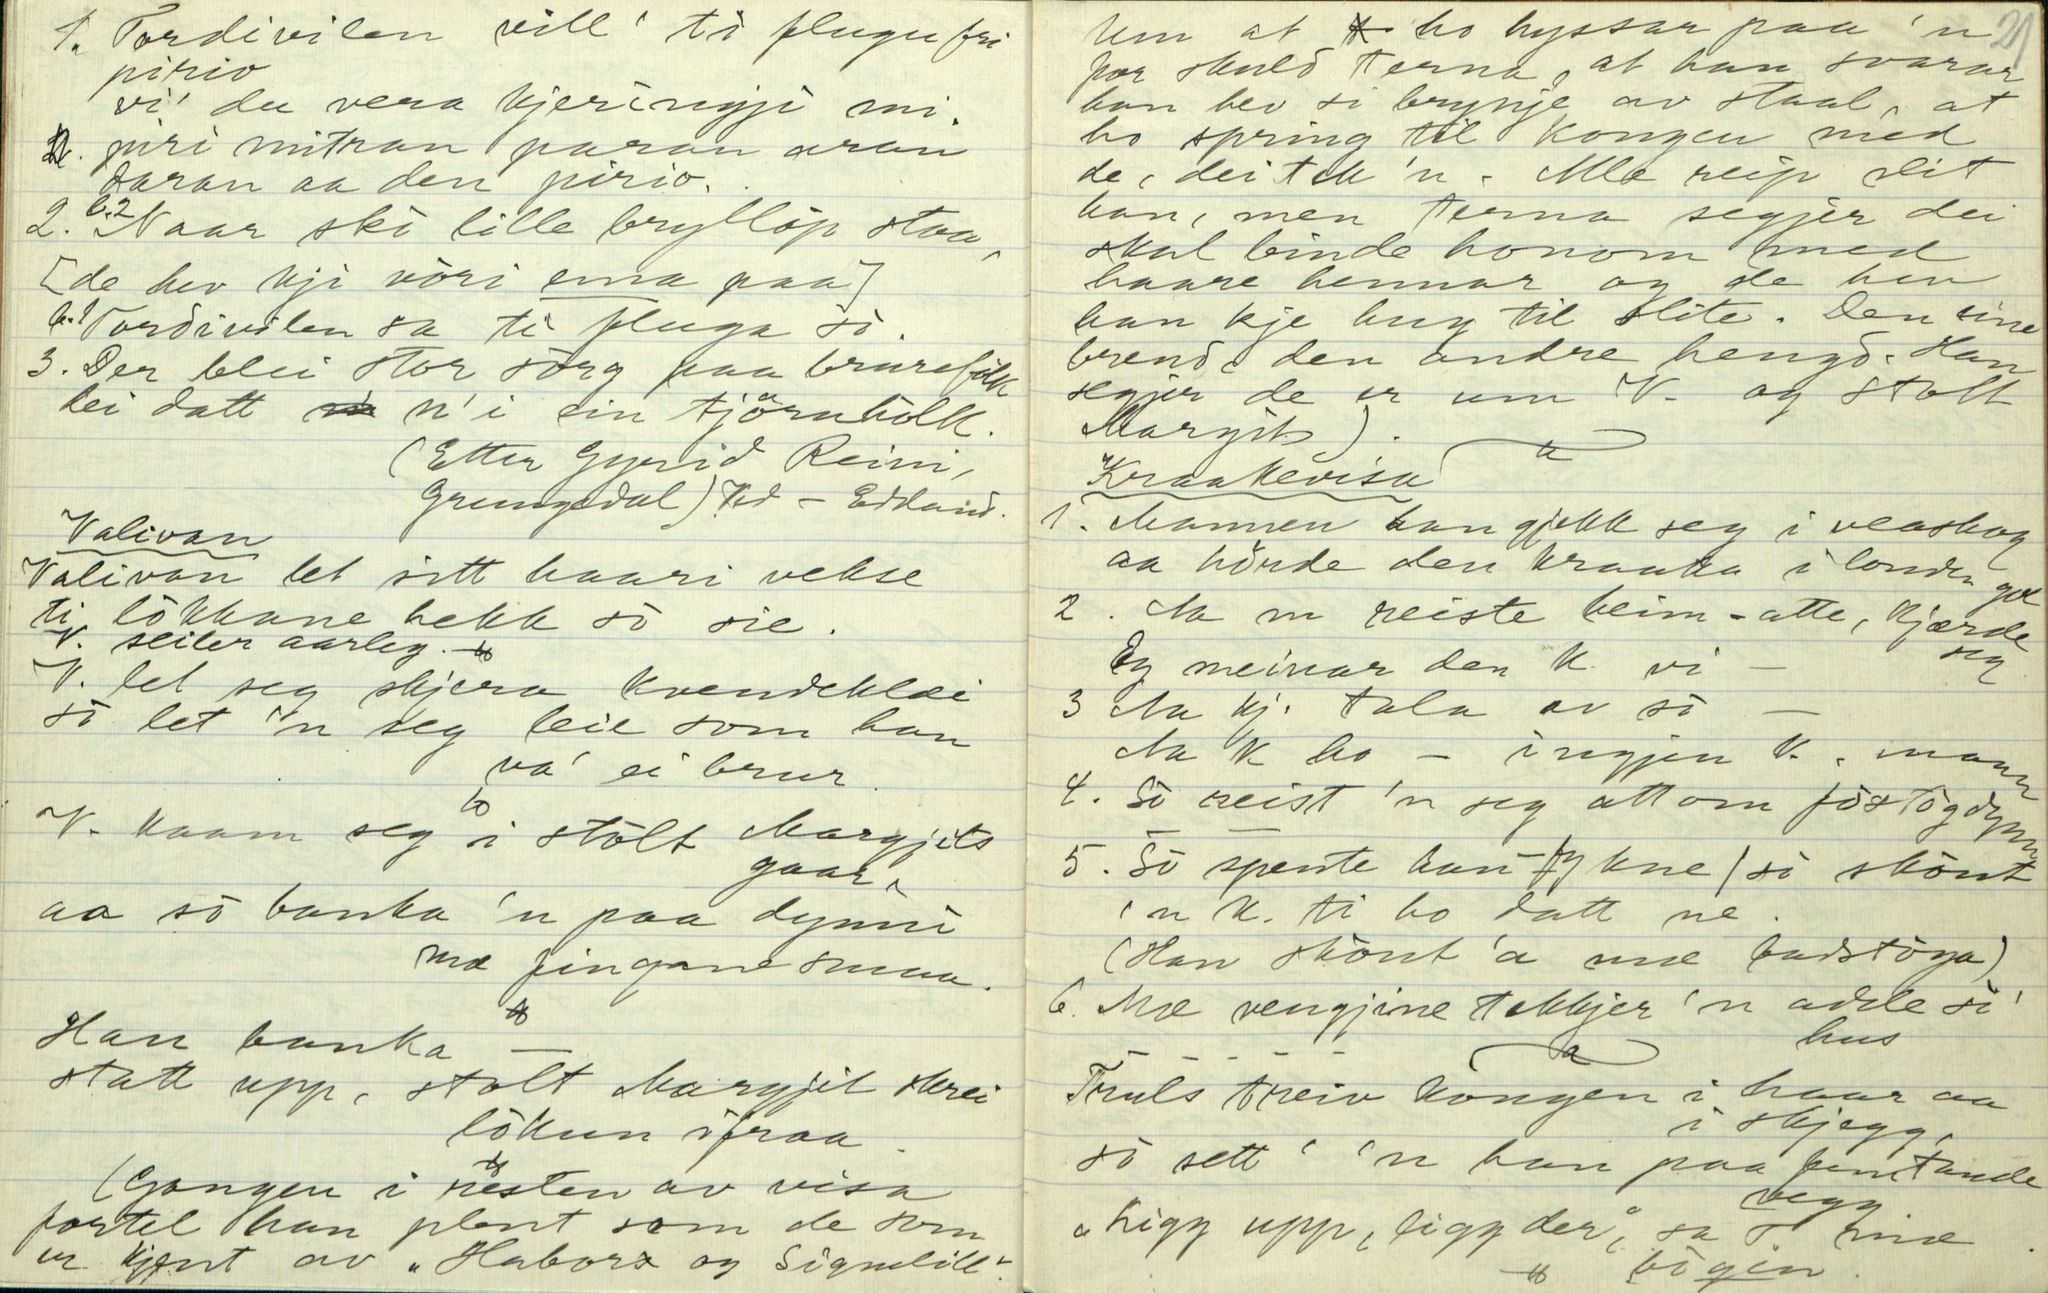 1. Tordivilen vill' ti flugu fri
pirio
vi' du vera kjeringji mi.
piri mitran paran aran
saran aa den pirio.
2. b.2 Naar ska lille bryllöp staa,
[de hev kji vöri enna paa]
b.1 Tordivilen sa ti fluga sò.
3. Der blei stor sorg paa brurefolk
dei datt n' i ein tjörnhölk.
(Etter Gyrid Reini,
Grungedal) Kd – Edland.
Valivan
Valivan let sitt haari vekse
ti lökkane hekk sò sie.
V. seiler aarleg.
V. let seg skjera kvendeklæi
sò let 'n seg leie som han
va' ei brur.
V. kaam seg i stolt Margjits
gaar,
aa sò banka 'n paa dynni
mæ fingane smaa.
Han banka —
statt upp, stolt Margjit skrei
lökun ifraa.
(Gangen i resten av visa
fortel han plent som de som
er kjent av „Habor og Signelill".
21
Um at ho hyssar paa 'n
for skuld terna, at han svarar
han hev si brynje av staal, at
ho spring til kongen med
de, dei tek 'n. Alle reip slit
han, men terna segjer dei
skal binde honom med
haare hennar og de hev
han kje hug til slite. Den eine
brend, den andre hengd. Han
segjer de er um V. og stolt
Margjit).
Kraakevisa
1. Mannen han gjekk seg i veaskog
aa hörde den kraaka i londen gol
2. Aa m reiste heim-atte, kjærde
seg
Eg meinar den k. vi —
3 Aa kj. tala av sò —
Aa k ho — ingjen k. mann
4. Sò reist 'n seg attom fjostögdynn
5. Sò spente han fy kne / sò skönt
'n k. ti ho datt ne.
(Han skönt 'a mæ badstöga)
6. Mæ vengjine tekkjer 'n adde si'
hus
Truls treiv kongen i haar aa
i skjegg,
sò sett' 'n han paa femtande
vegg
„Ligg upp, ligg der", sa T mæ
bògin.